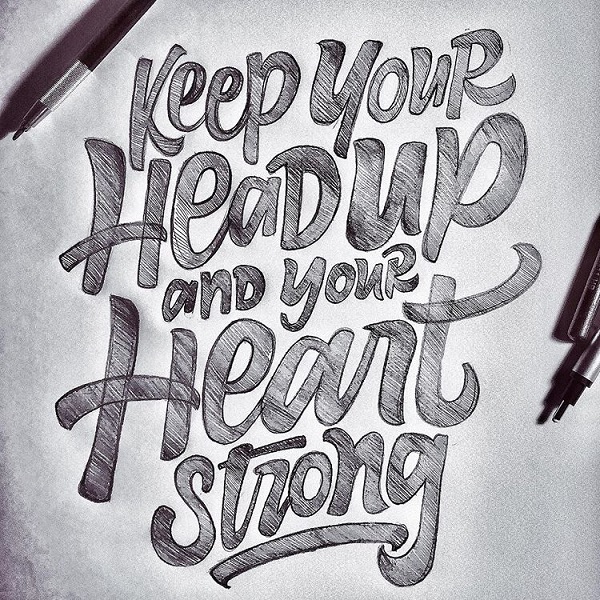 Keep Your
Head up
and your
Heart
strong